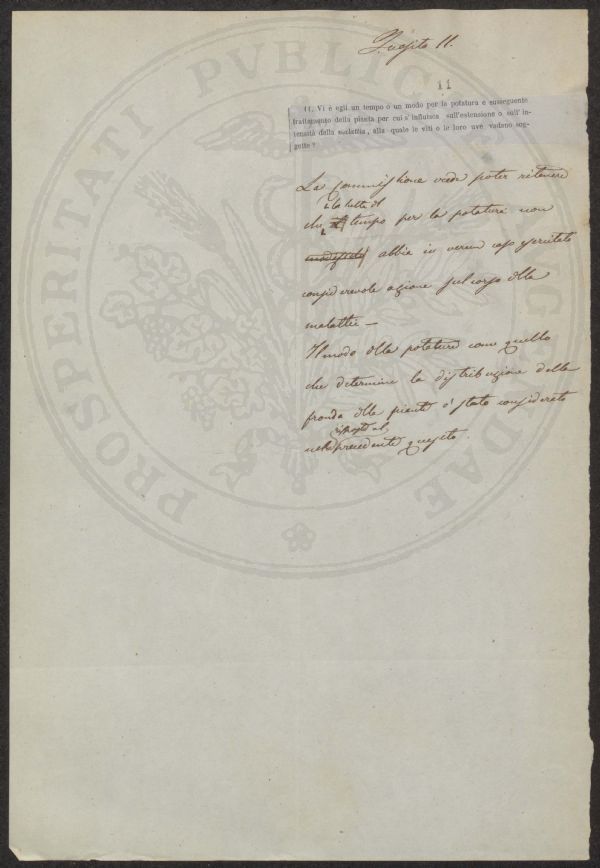 Quesito 11.
11
11. Vi è egli un tempo o un modo per la potatura e susseguente
trattamento della pianta per cui s'influisca sull'estensione o sull'in-
tensità della malattia, alla quale le viti o le loro uve vadano sog-
gette?
La Commissione crede poter ritenere
che il tempo per la potatura non
abbia in verun caso esercitato
considerevole azione sul corso della
malattia —
Il modo della potatura come quello
che determina la distribuzione delle
fronda della pianta è stato considerato
nella risposta al
precedente quesito.
PROSPERITATI PUBLICAE AUGENDAE